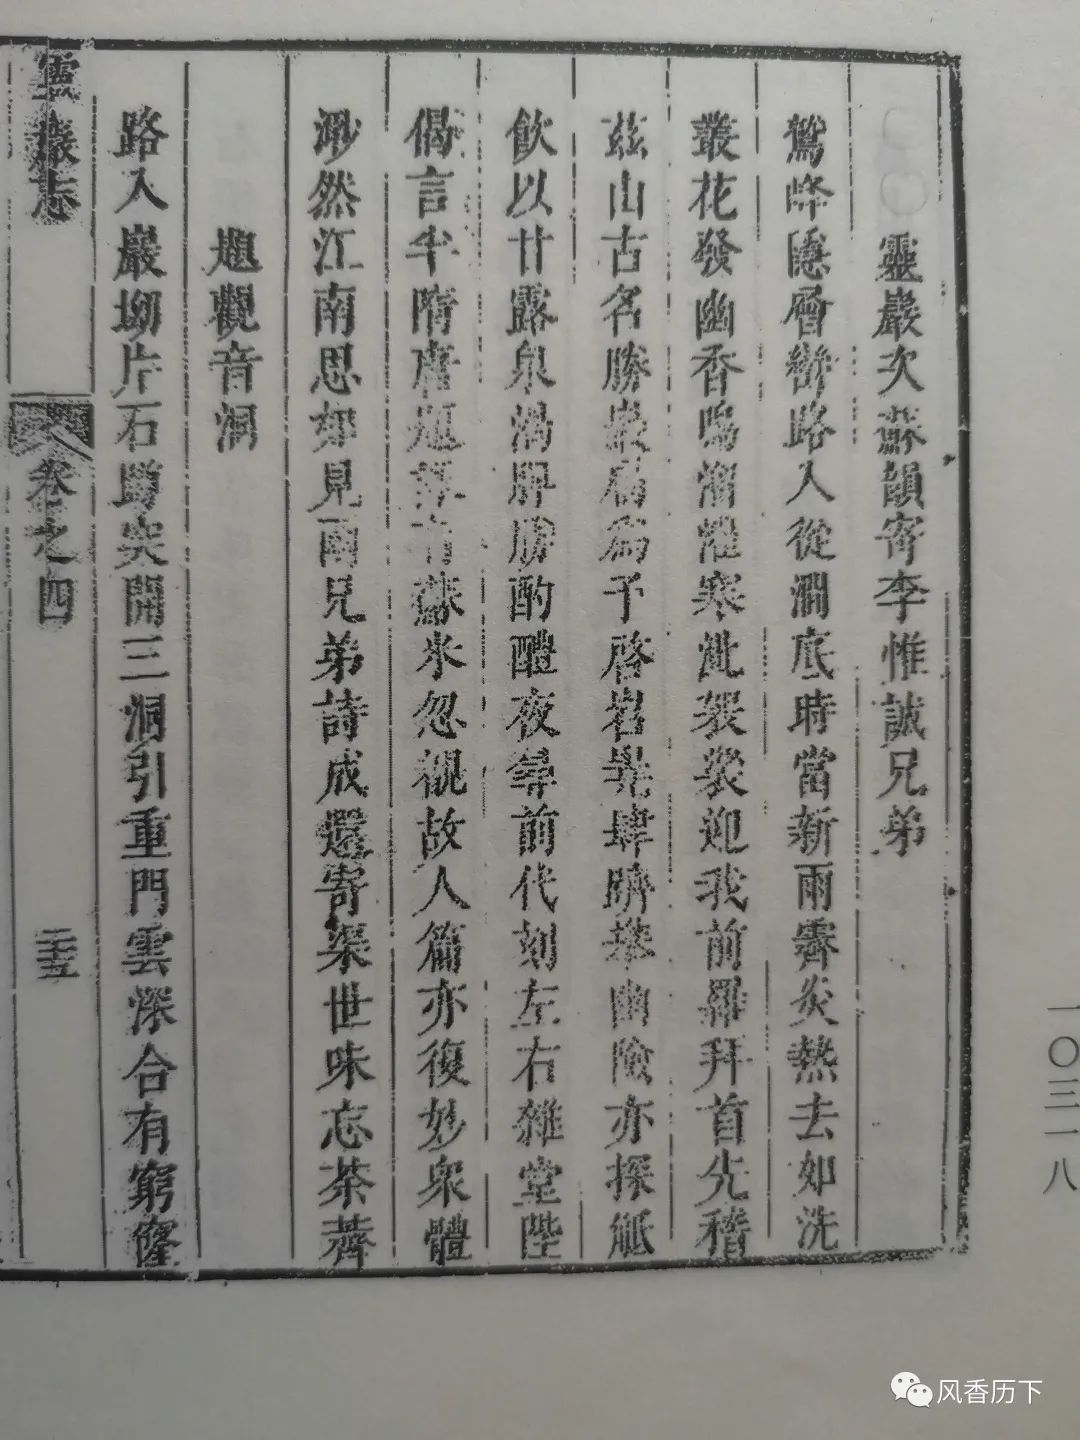 靈巖次蘇韻寄李惟誠兄弟
鷲峰隱層巒路入從澗底時當新雨霽炎熱去如洗
叢花發幽香鳴溜灌寒泚袈裟迎我前羅拜首先稽
茲山古名勝巖扃為予啓岩嶤肆躋攀幽險亦探觝
飲以甘露泉渴肝勝酌醴夜尋前代刻左右雜堂陛
偈言半隋唐題詠有蘇米忽観故人篇亦復妙衆體
渺然江南思如見兩兄弟詩成還寄渠世味忘茶薺
題觀音洞
路入巖坳片石蹲突開三洞引重門雲深合有窮窿
靈巖志
卷之四
二十五
一〇三一八
风香历下